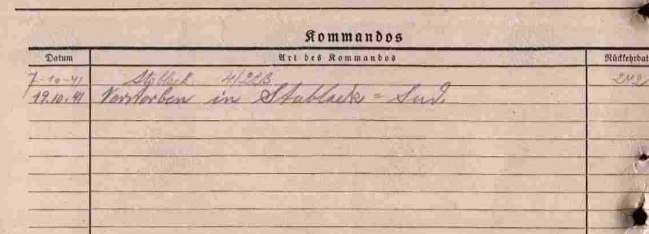 Kommandos
Datum Art des Kommandos Rückkehrdat
7-10-41 Stablack
19.10.41 Verstorben in Stablack = Süd.